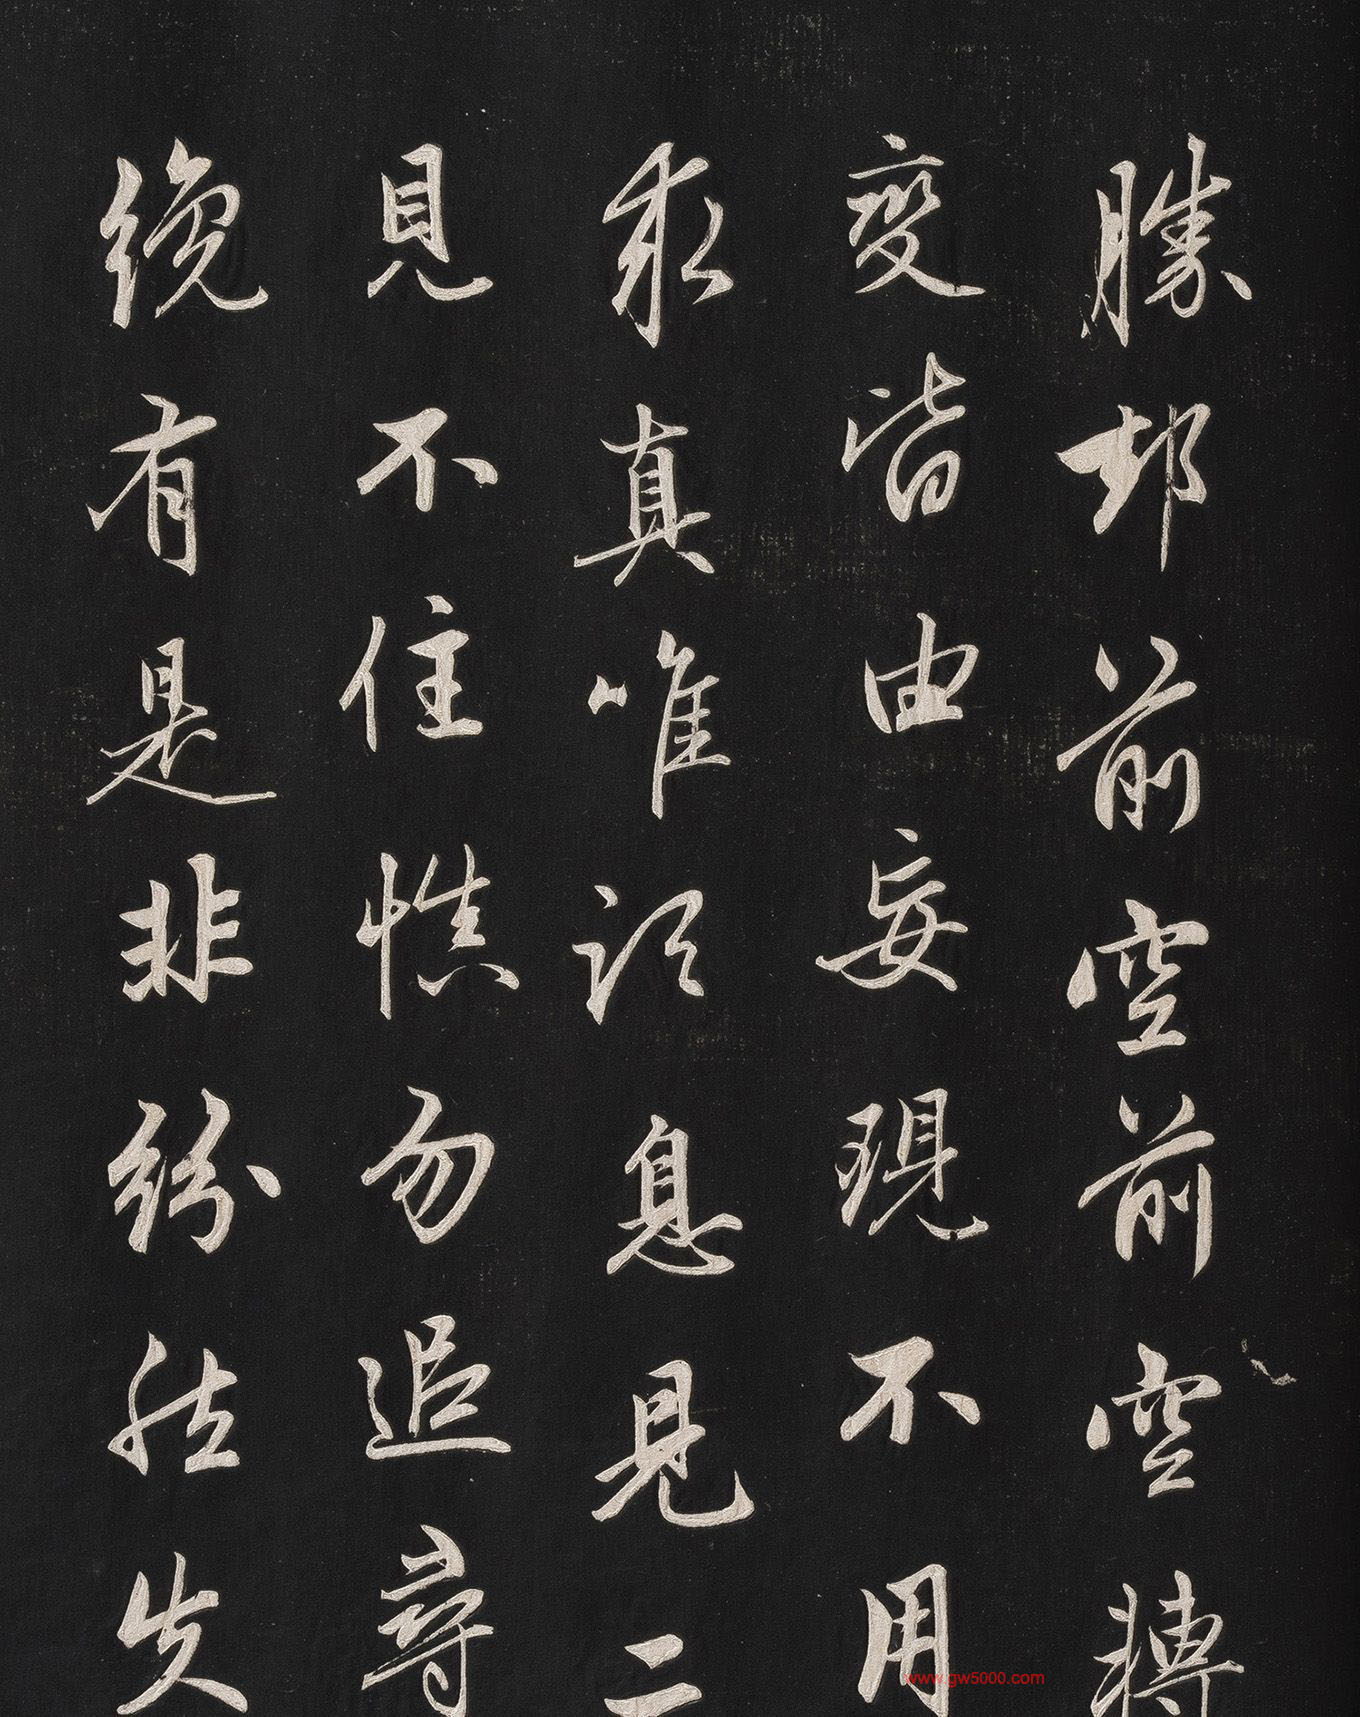 勝却前空前空轉
變皆由妄現不用
求真唯須息見二
見不住慎勿追尋
纔有是非紛然失
www.gw5000.com